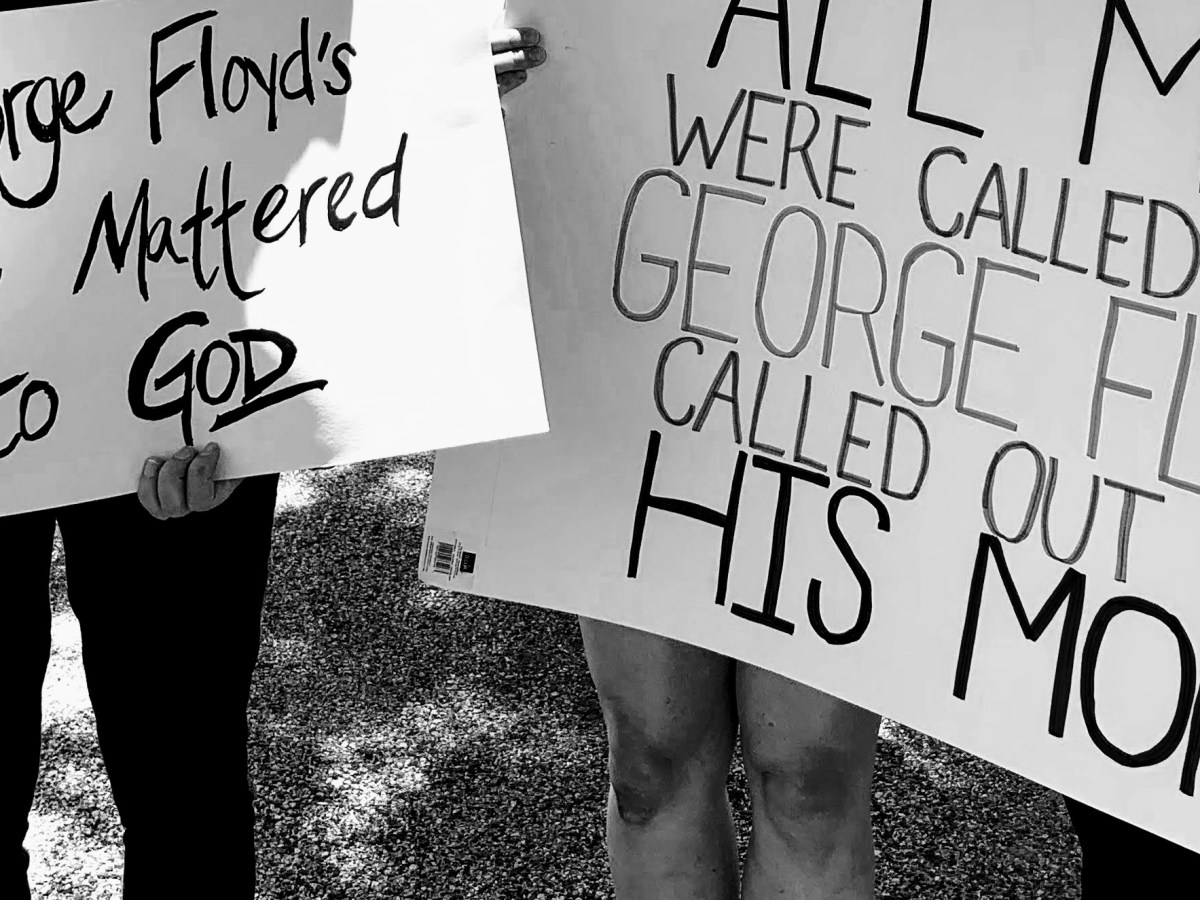 rge Floyd's
Mattered
to GOD
ALL M
WERE CALLED
GEORGE FL
CALLED OUT
HIS MO